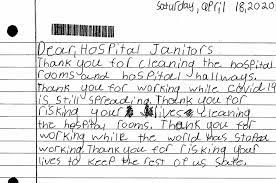 Saturday, april 18, 2020
Dear, Hospital Janitors
Thank you for cleaning the hospital
rooms and hospital hallways.
Thank you for working while covid-19
is still spreading. Thank you for
risking your lives cleaning
the hospital rooms. Thank you for
working while the world has stoped
working. Thank you for risking your
lives to keep the rest of us safe.